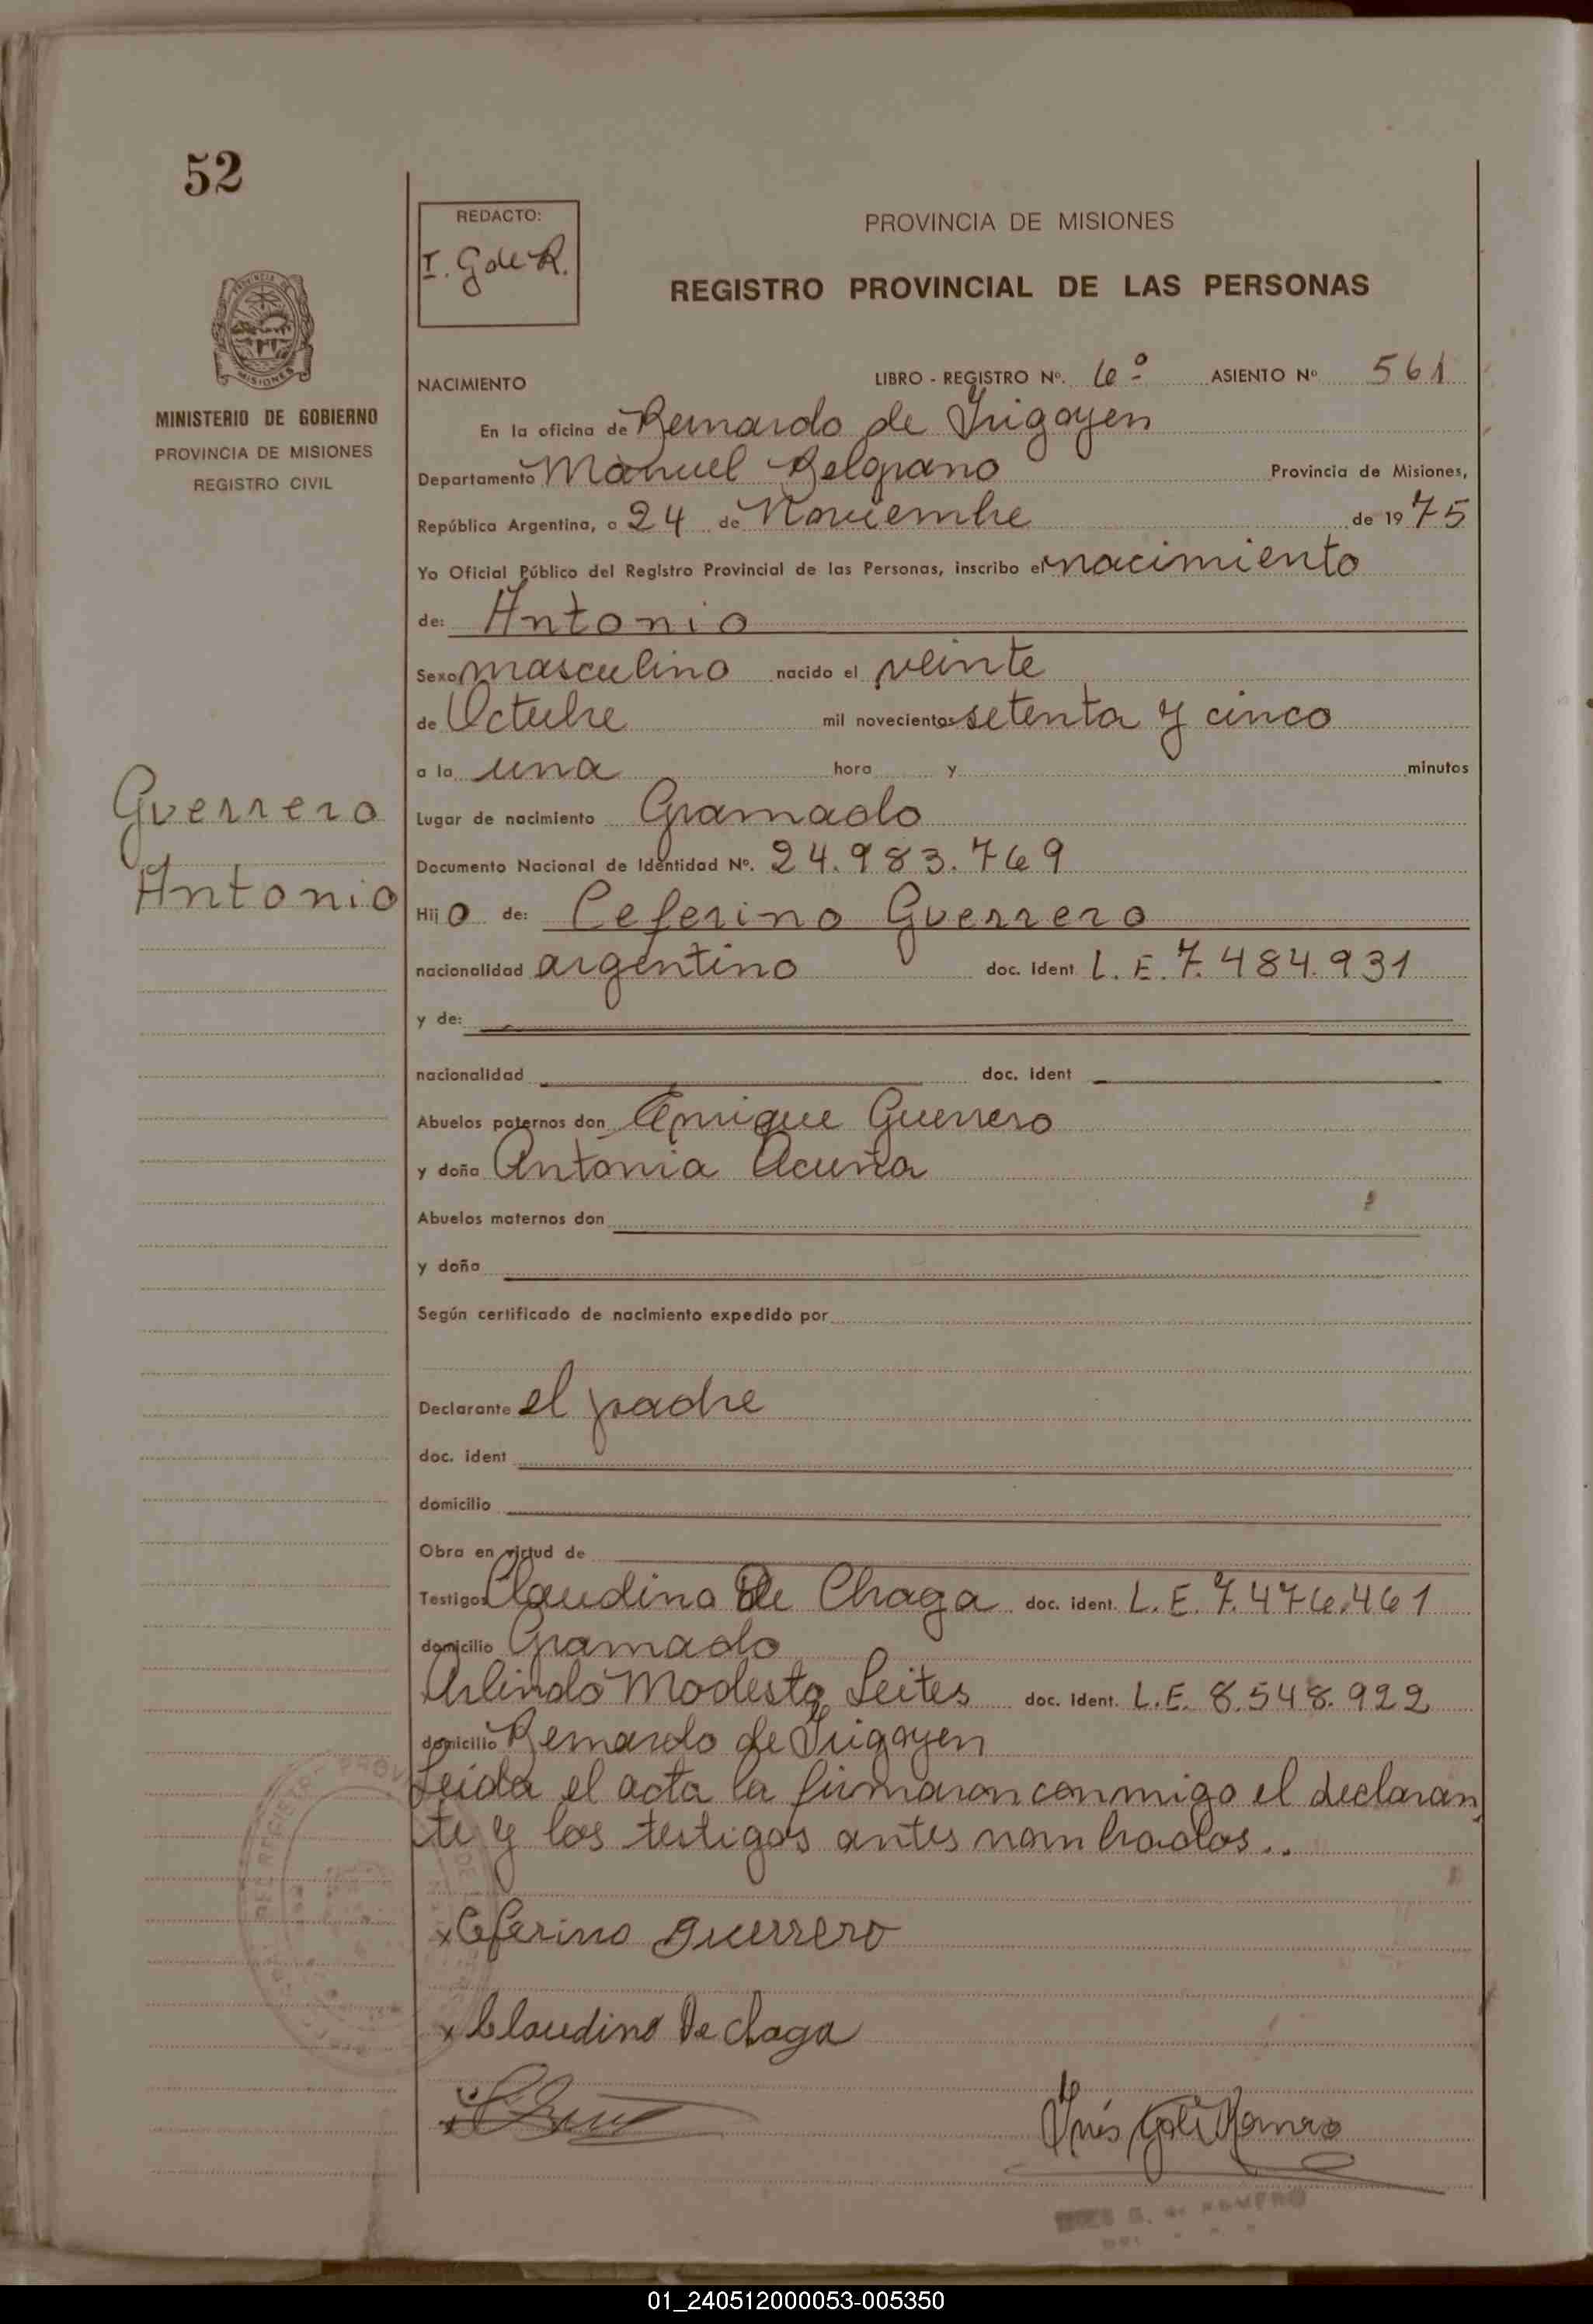 52
REDACTO:
I. G de R.
PROVINCIA DE MISIONES
REGISTRO PROVINCIAL DE LAS PERSONAS
MISIONES
MINISTERIO DE GOBIERNO
PROVINCIA DE MISIONES
REGISTRO CIVIL
NACIMIENTO LIBRO - REGISTRO Nº. 6º ASIENTO Nº 561
En la oficina de Bernardo de Irigoyen
Departamento Manuel Belgrano Provincia de Misiones,
República Argentina, a 24 de Noviembre de 1975
Yo Oficial Público del Registro Provincial de las Personas, inscribo el nacimiento
de: Antonio
Sexo masculino nacido el veinte
de Octubre mil novecientos setenta y cinco
a la una hora y minutos
Guerrero
Antonio
Lugar de nacimiento Gramado
Documento Nacional de Identidad Nº. 24.983.769
Hijo de: Ceferino Guerrero
nacionalidad argentino doc. ident L. E. 7.484.931
y de:
nacionalidad doc. ident
Abuelos paternos don Enrique Guerrero
y doña Antonia Acuña
Abuelos maternos don
y doña
Según certificado de nacimiento expedido por
Declarante el padre
doc. ident
domicilio
Obra en virtud de
Testigos Claudino De Chaga doc. ident. L. E. 7.476.461
domicilio Gramado
Arlindo Modesto Leites doc. ident. L.E. 8.548.922
domicilio Bernardo de Irigoyen
Leida el acta la firmaron conmigo el declaran
te y los testigos antes nombrados..
x Ceferino Guerrero
x Claudino De chaga
Inés G. de Romero
01_240512000053-005350